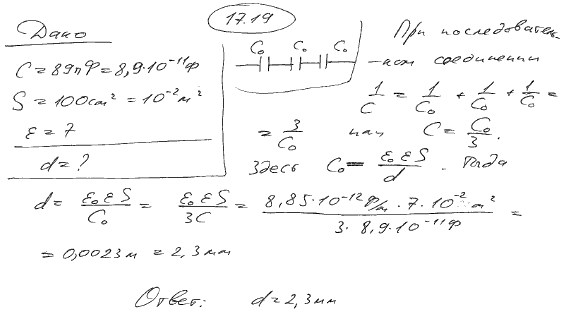 17.19
Дано
C = 89пФ = 8,9·10⁻¹¹Ф
S = 100см² = 10⁻²м²
ε = 7
d = ?
C₀ C₀ C₀
При последователь-
-ном соединении
1/C = 1/C₀ + 1/C₀ + 1/C₀ =
= 3/C₀ или C = C₀/3.
Здесь C₀ = ε₀εS/d. Тогда
d = ε₀εS/C₀ = ε₀εS/3C = 8,85·10⁻¹²Ф/м·7·10⁻²м²/3·8,9·10⁻¹¹Ф =
= 0,0023м = 2,3мм
Ответ: d = 2,3мм